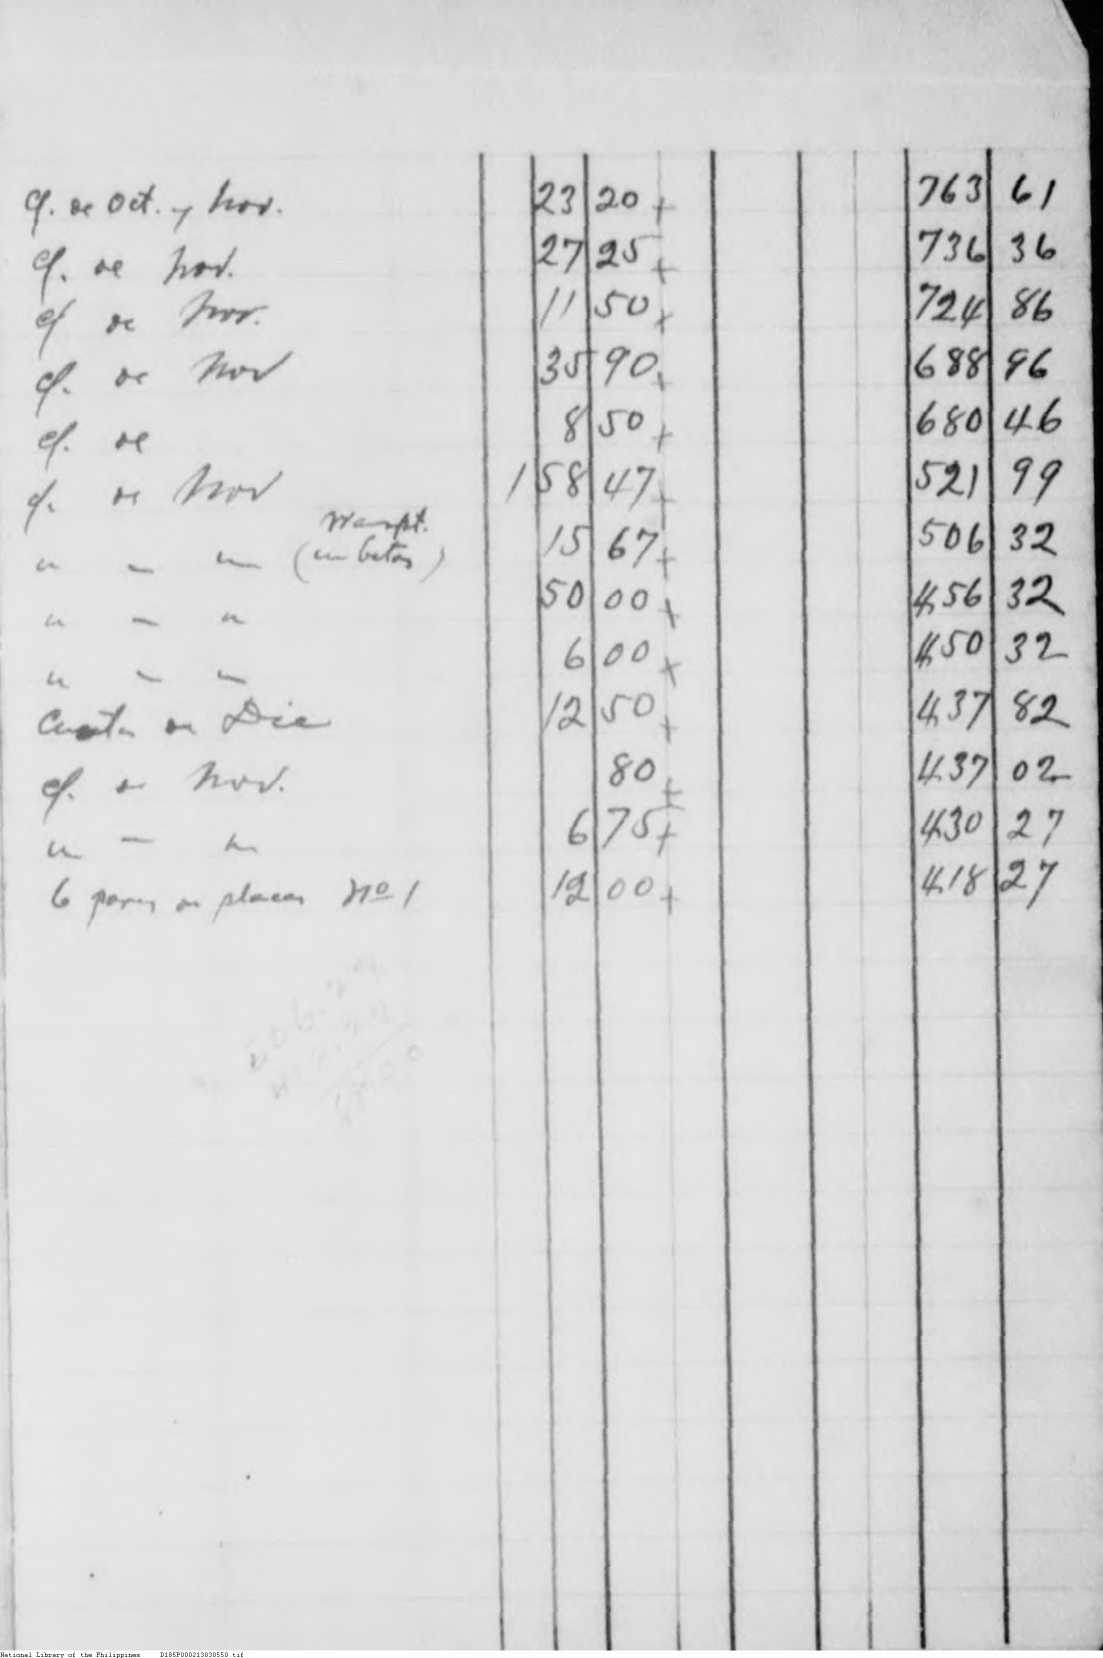 Cf. de Oct. y Nov. 23 20 + 763 61
Cf. de Nov. 27 25 + 736 36
Cf de Nov. 11 50 + 724 86
Cf. de Nov 35 90 + 688 96
Cf. de 8 50 + 680 46
Cf. de Nov 1 58 47 + 521 99
" " " ( ) 15 67 + 506 32
" " " 50 00 + 456 32
" " " 6 00 + 450 32
de Dic 12 50 + 437 82
Cf. de Nov. 80 + 437 02
" " " 6 75 + 430 27
6 pares de placas No 1 12 00 + 418 27
National Library of the Philippines D185P000213838550.tif